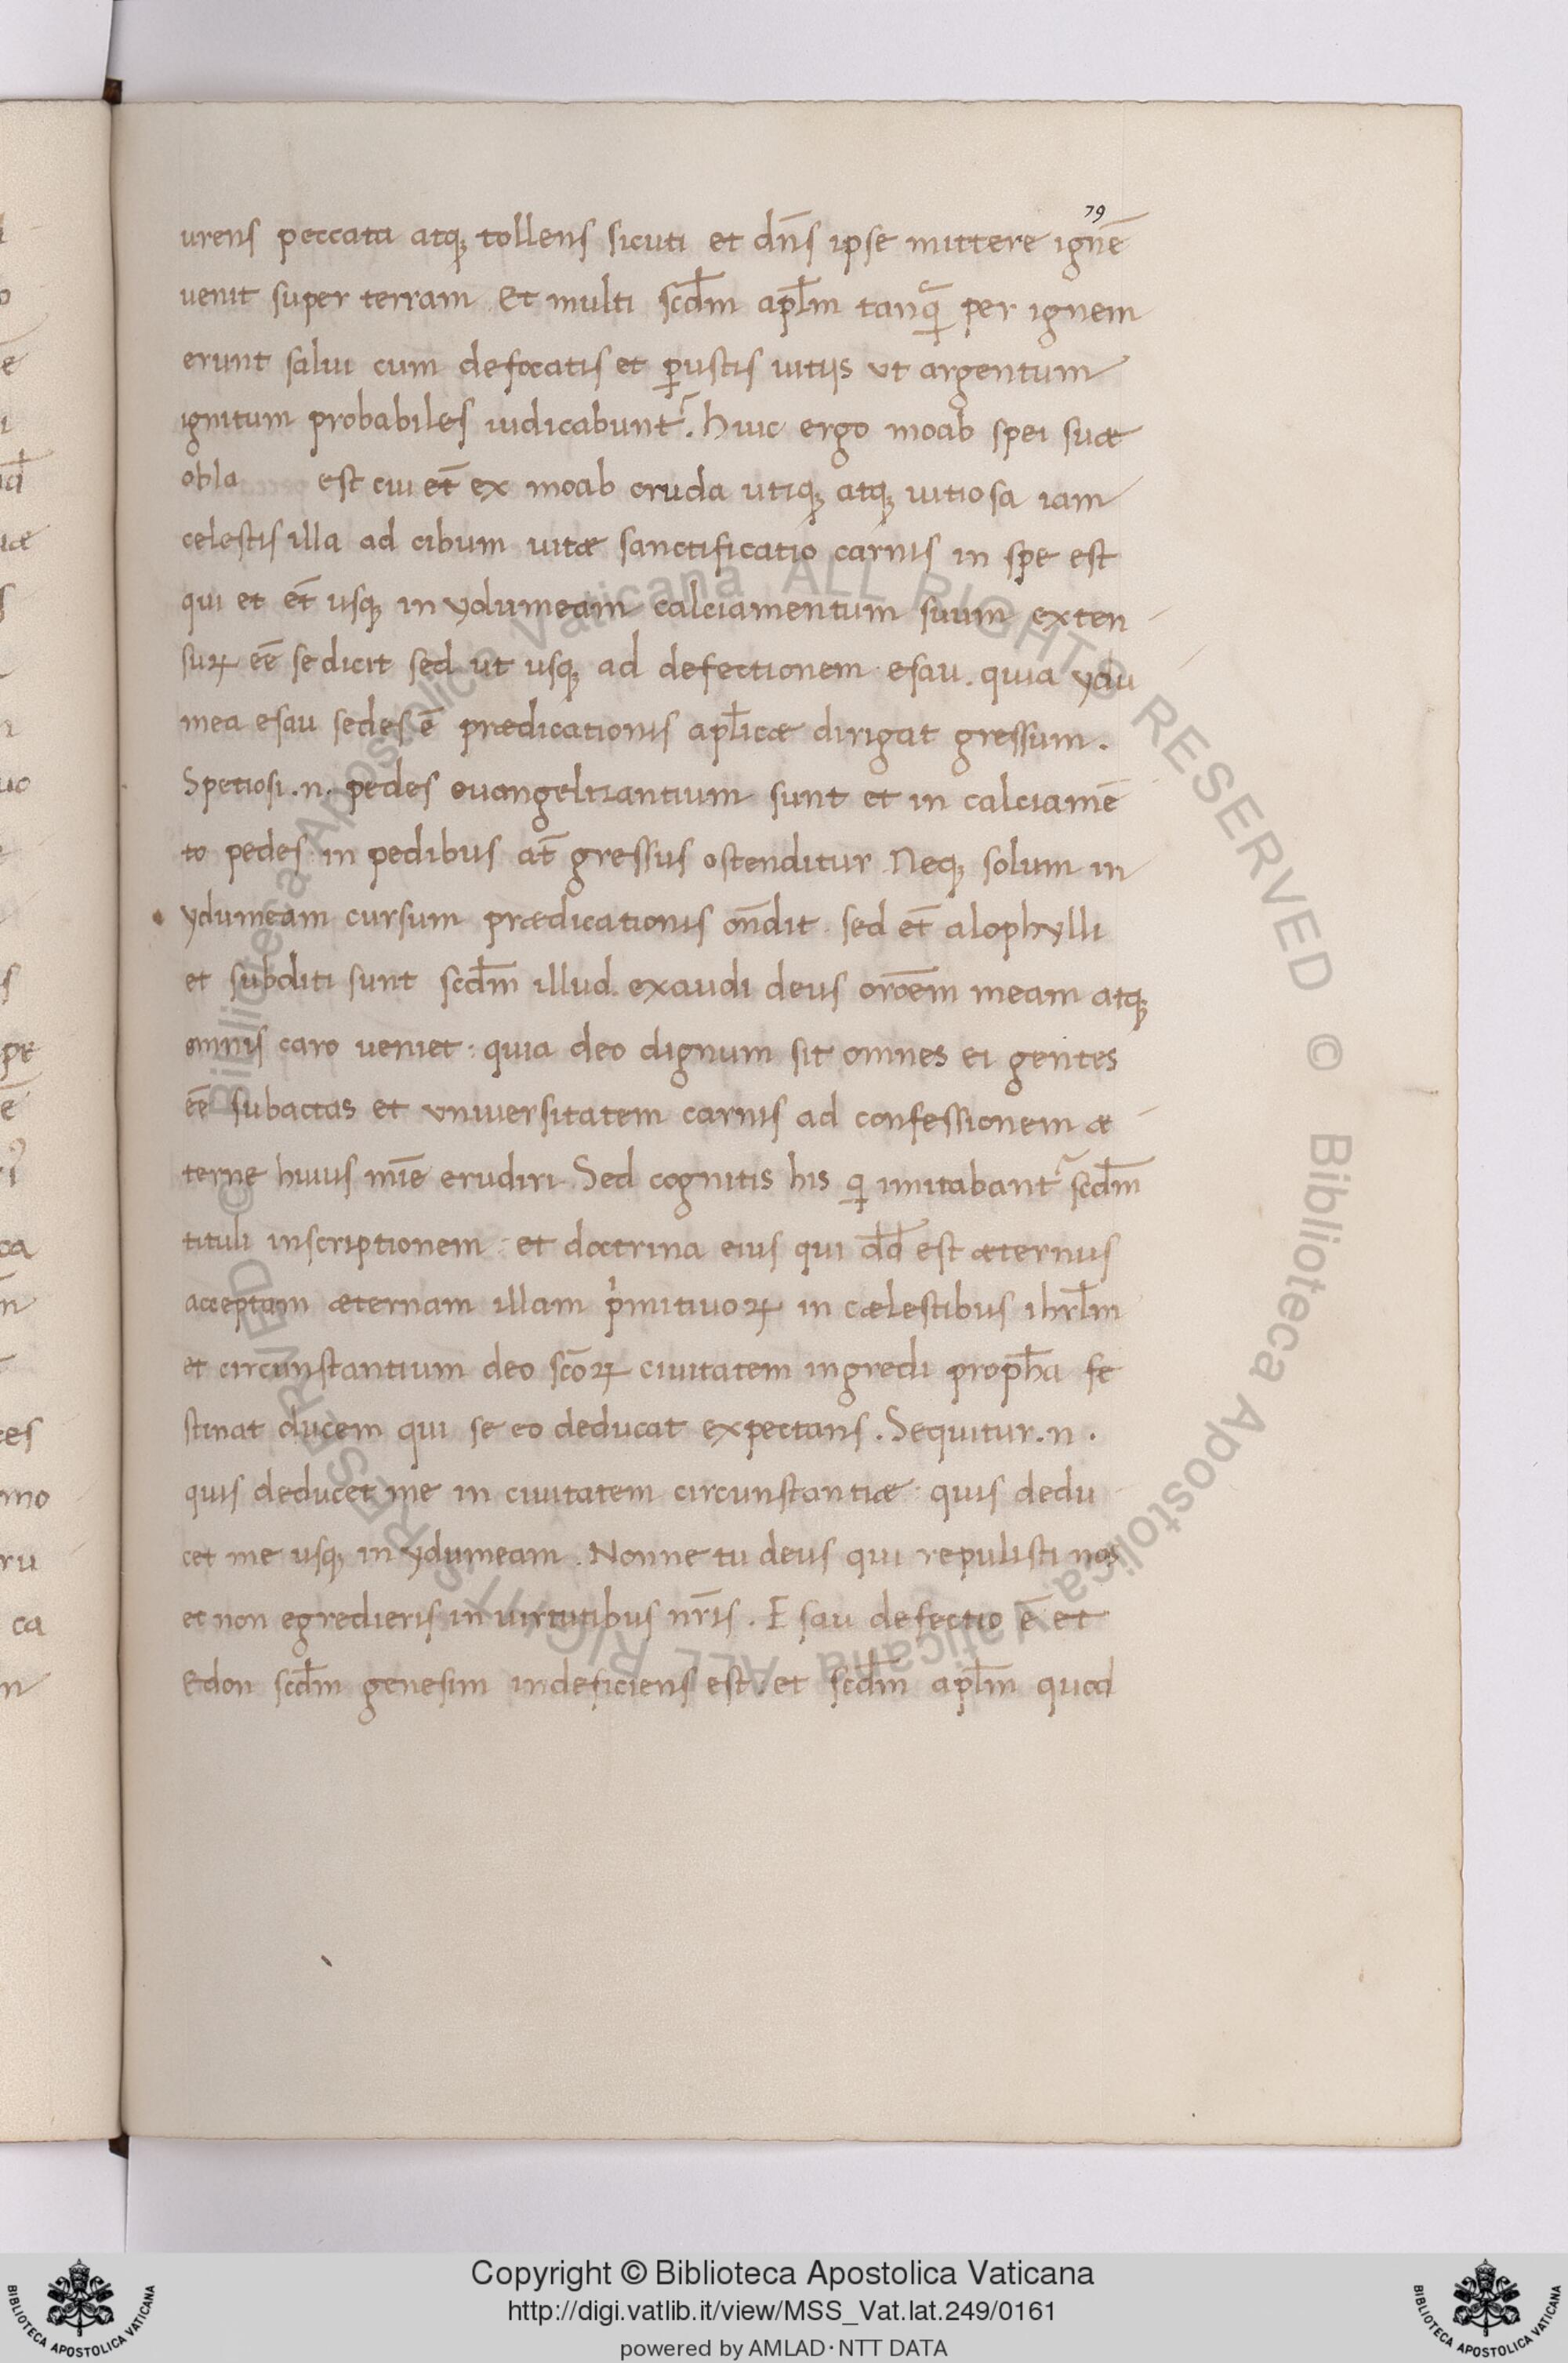 79
urens peccata atq; tollens sicuti et dñs ipse mittere ignē
uenit super terram Et multi scd̄m apl̄m tanq̄ per ignem
erunt salui cum defocatis et ꝑustis uitijs vt argentum
ignitum probabiles iudicabunt᷑. huic ergo moab spei suæ
obla est cui et̄ ex moab cruda utiq; atq; uitiosa iam
celestis illa ad cibum uitæ sanctificatio carnis in spe est
qui et et̄ usq; in ydumeam calciamentum suum exten
suꝝ eē se dicit sed ut usq; ad defectionem esau. quia ydu
mea esau sedes ē prædicationis apl̄icæ dirigat gressum.
Spetiosi .n. pedes euangelizantium sunt et in calciamē
to pedes in pedibus at̄ gressus ostenditur. Neq; solum in
ydumeam cursum prædicationis on̄dit sed et̄ alophylli
et subditi sunt scd̄m illud. exaudi deus orōem meam atq;
omnis caro ueniet: quia deo dignum sit omnes ei gentes
eē subactas et vniuersitatem carnis ad confessionem æ
terne huius mīe erudiri. Sed cognitis his q̄ imitabant᷑ scd̄m
tituli inscriptionem: et doctrina eius qui dd̄ est æternus
acceptam æternam illam pⁱmitiuoꝝ in cælestibus ihrl̄m
et circunstantium deo scōꝝ ciuitatem ingredi proph̄a fe
stinat ducem qui se eo deducat expectans. Sequitur .n.
quis deducet me in ciuitatem circunstantiæ: quis dedu
cet me usq; in ydumeam. Nonne tu deus qui repulisti nos
et non egredieris in uirtutibus nr̄is. Esau defectio ē et
edon scd̄m genesim indeficiens est. et scd̄m apl̄m quod
Copyright © Biblioteca Apostolica Vaticana
http://digi.vatlib.it/view/MSS_Vat.lat.249/0161
powered by AMLAD · NTT DATA